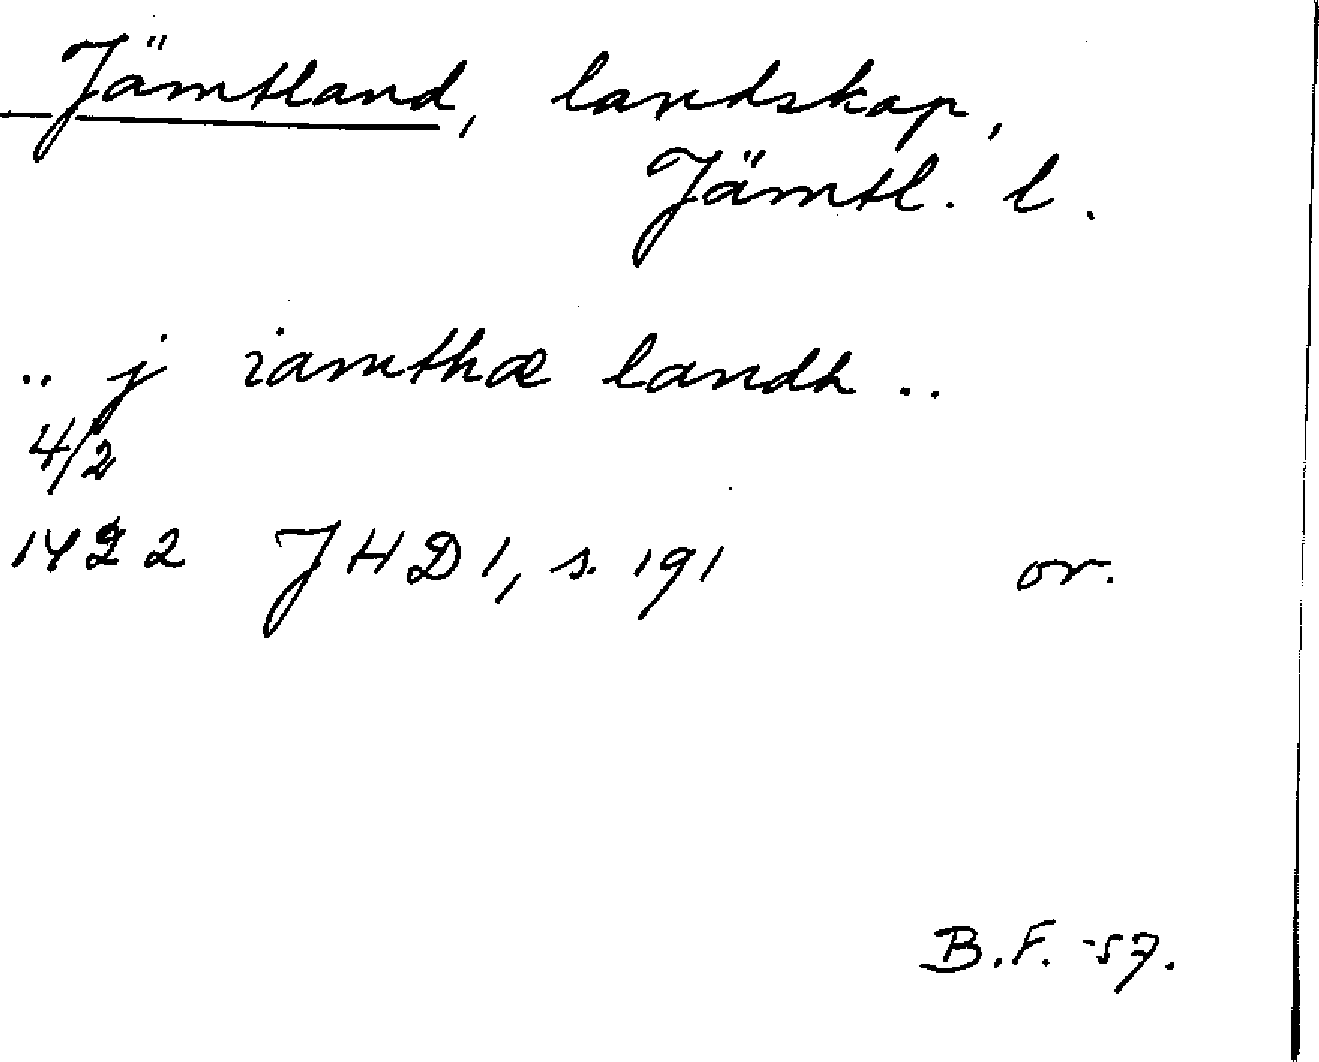 Jämtland, landskap,
Jämtl. l.
.. j iamthæ landh ..
4/2
1422 JHD 1, s. 191 or.
B.F. -57.